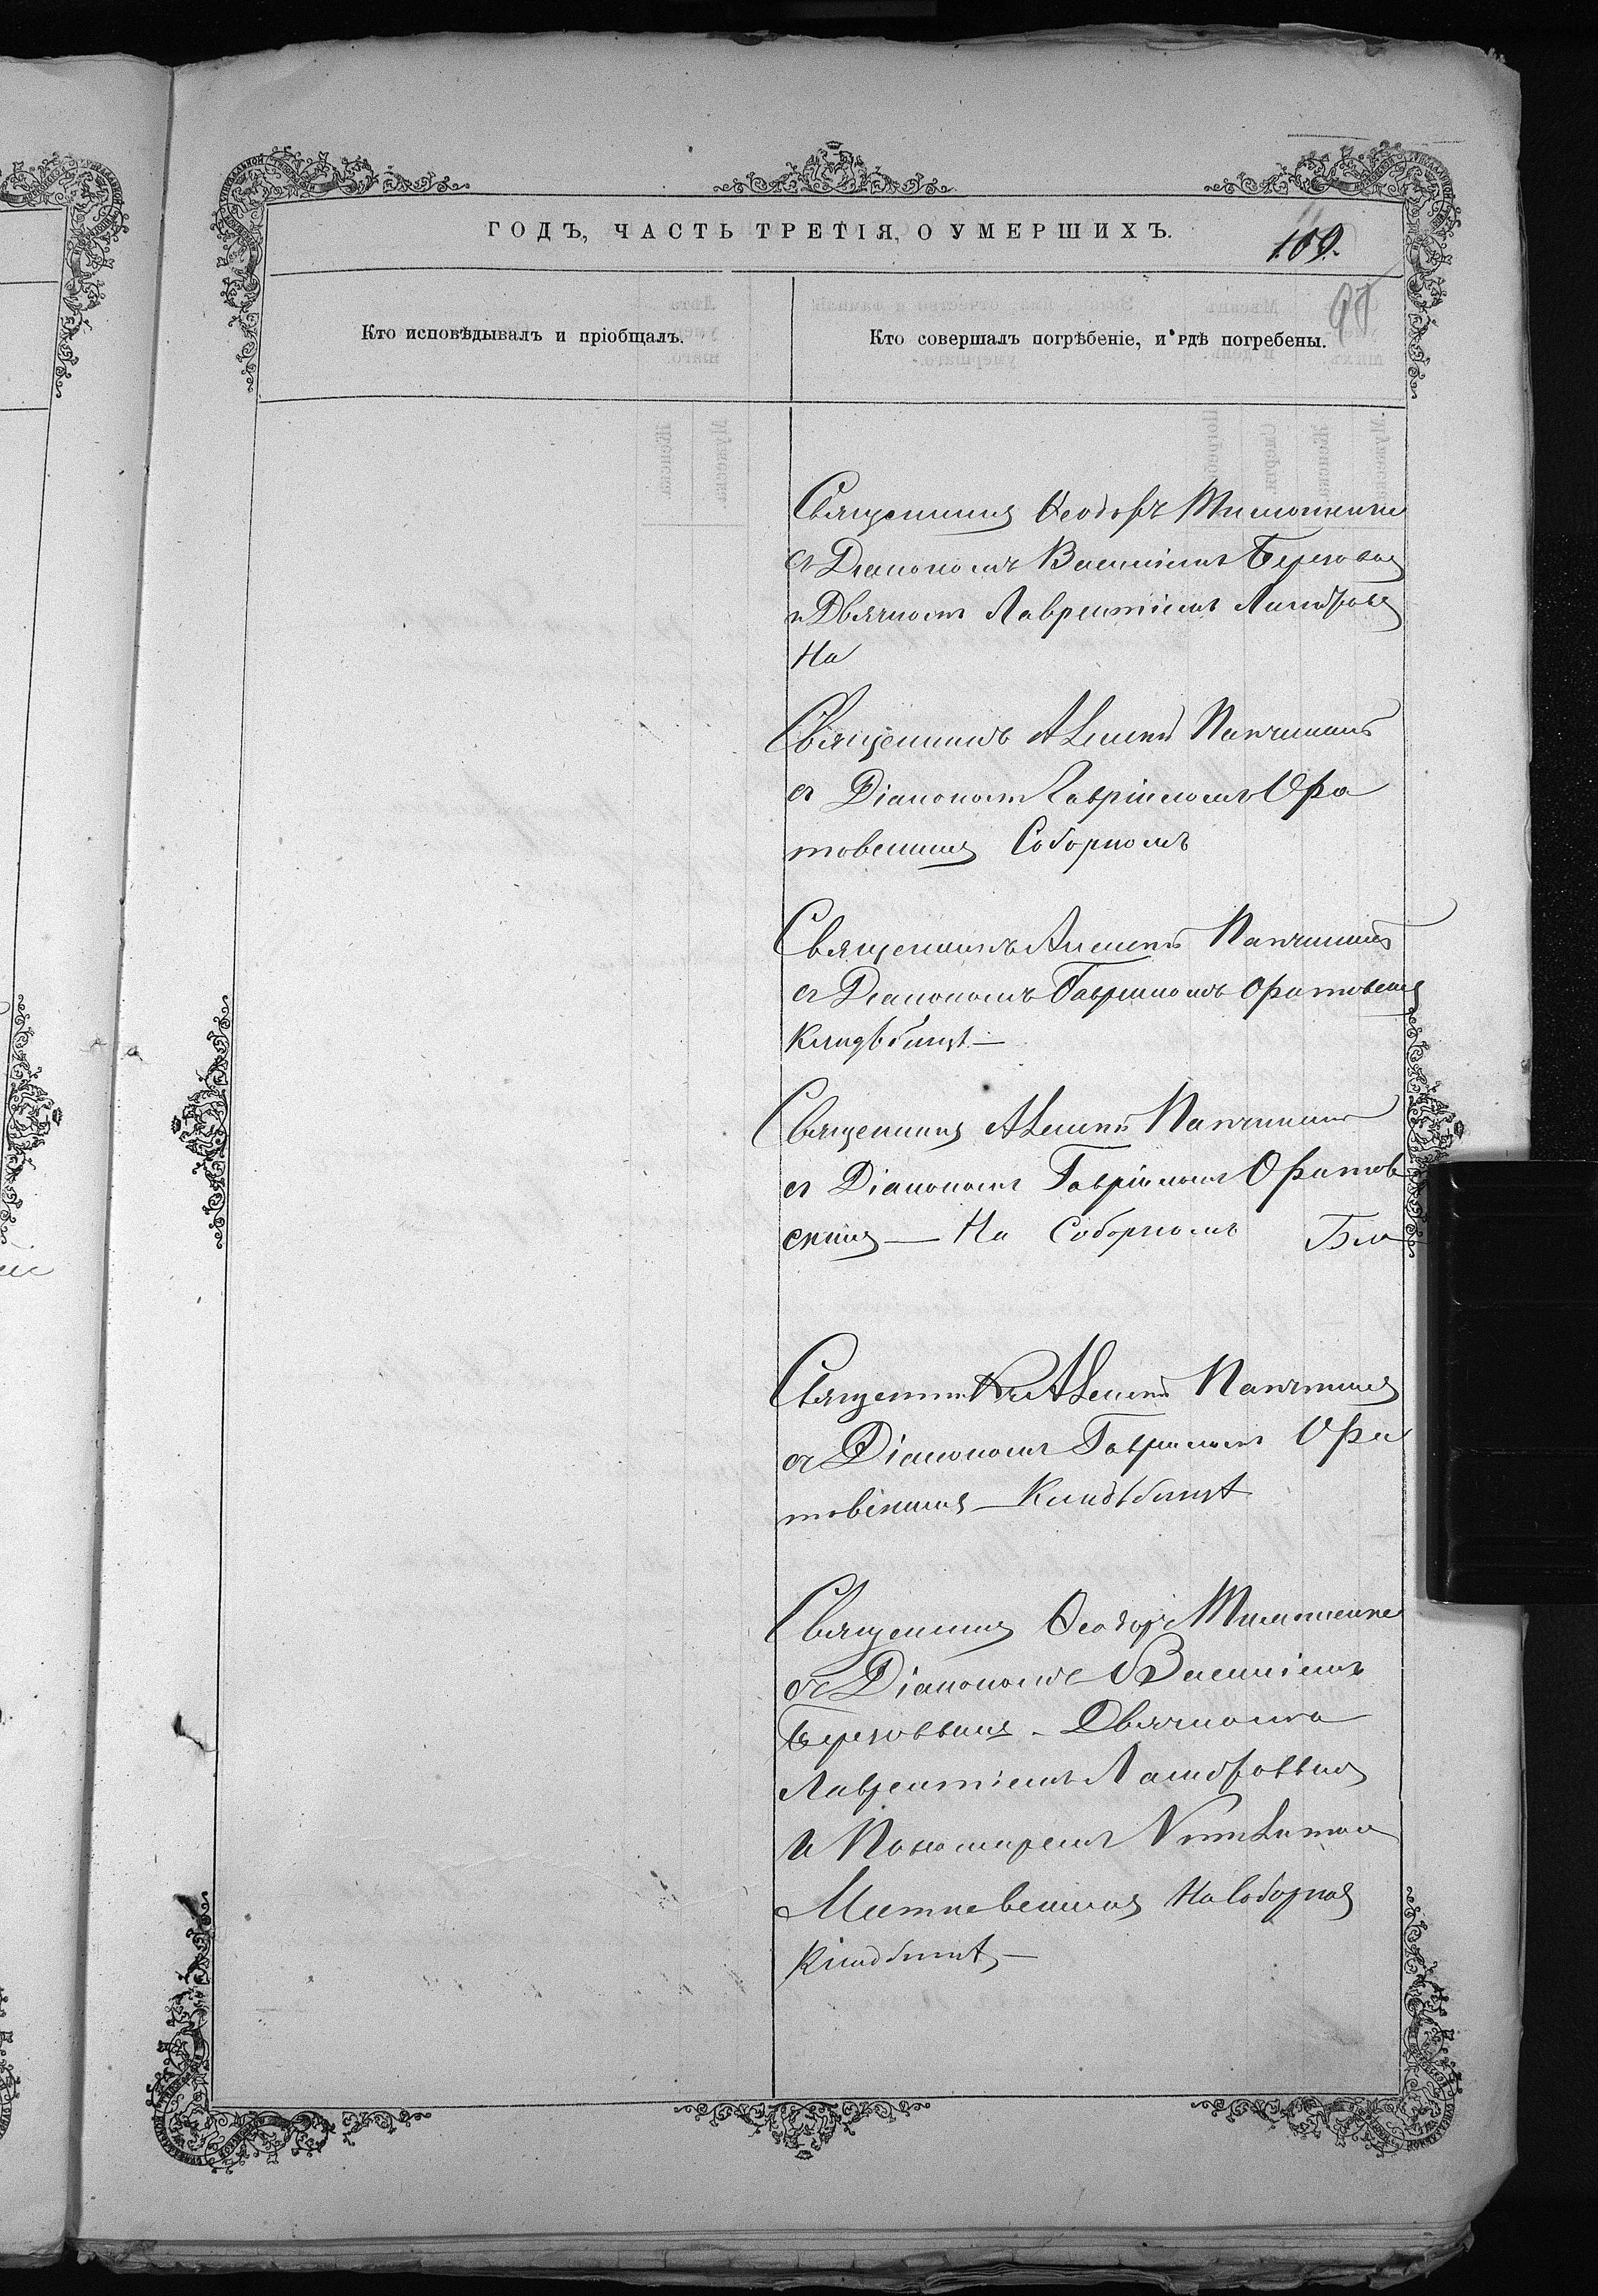 ГОДЪ, ЧАСТЬ ТРЕТІЯ, О УМЕРШИХЪ.
109.
Кто исповѣдывалъ и пріобщалъ.
Кто совершалъ погрѣбеніе, и гдѣ погребены.
Священникъ Ѳеодоръ Тимошенко
съ Діакономъ Василіемъ Березовы
и Дьячкомъ Лаврентіемъ
На
Священникъ Алексѣй
съ Діакономъ Гавріиломъ Ора
товскимъ Соборномъ
Священникъ Алексѣй
съ Діакономъ Гавріиломъ Оратовским
Кладбищѣ —
Священникъ Алексѣй
съ Діакономъ Гавріиломъ Оратов
скимъ — На Соборномъ Кла
Священникъ Алексѣй
съ Діакономъ Гавріиломъ Ора
товскимъ — Кладбищѣ
Священникъ Ѳеодоръ Тимошенко
съ Діакономъ Василіемъ
Березовымъ Дьячкомъ
Лаврентіемъ
и Пономаремъ
На Соборном
Кладбищѣ —